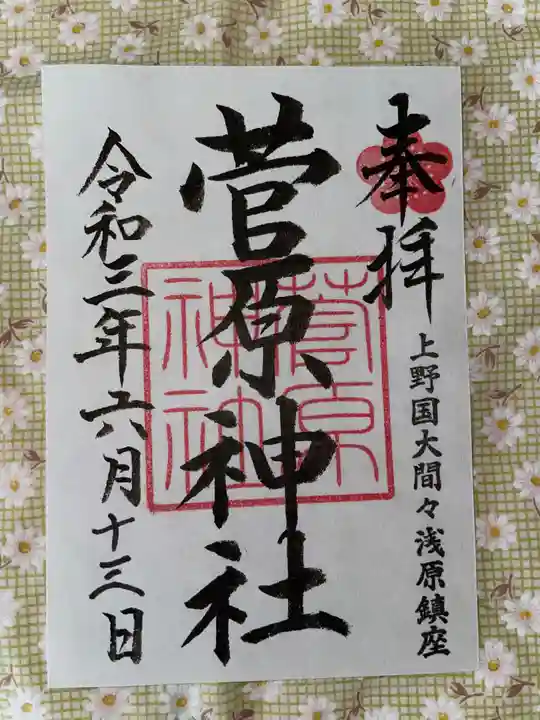 奉拝
上野国大間々浅原鎮座
菅原神社
菅原
神社
令和三年六月十三日